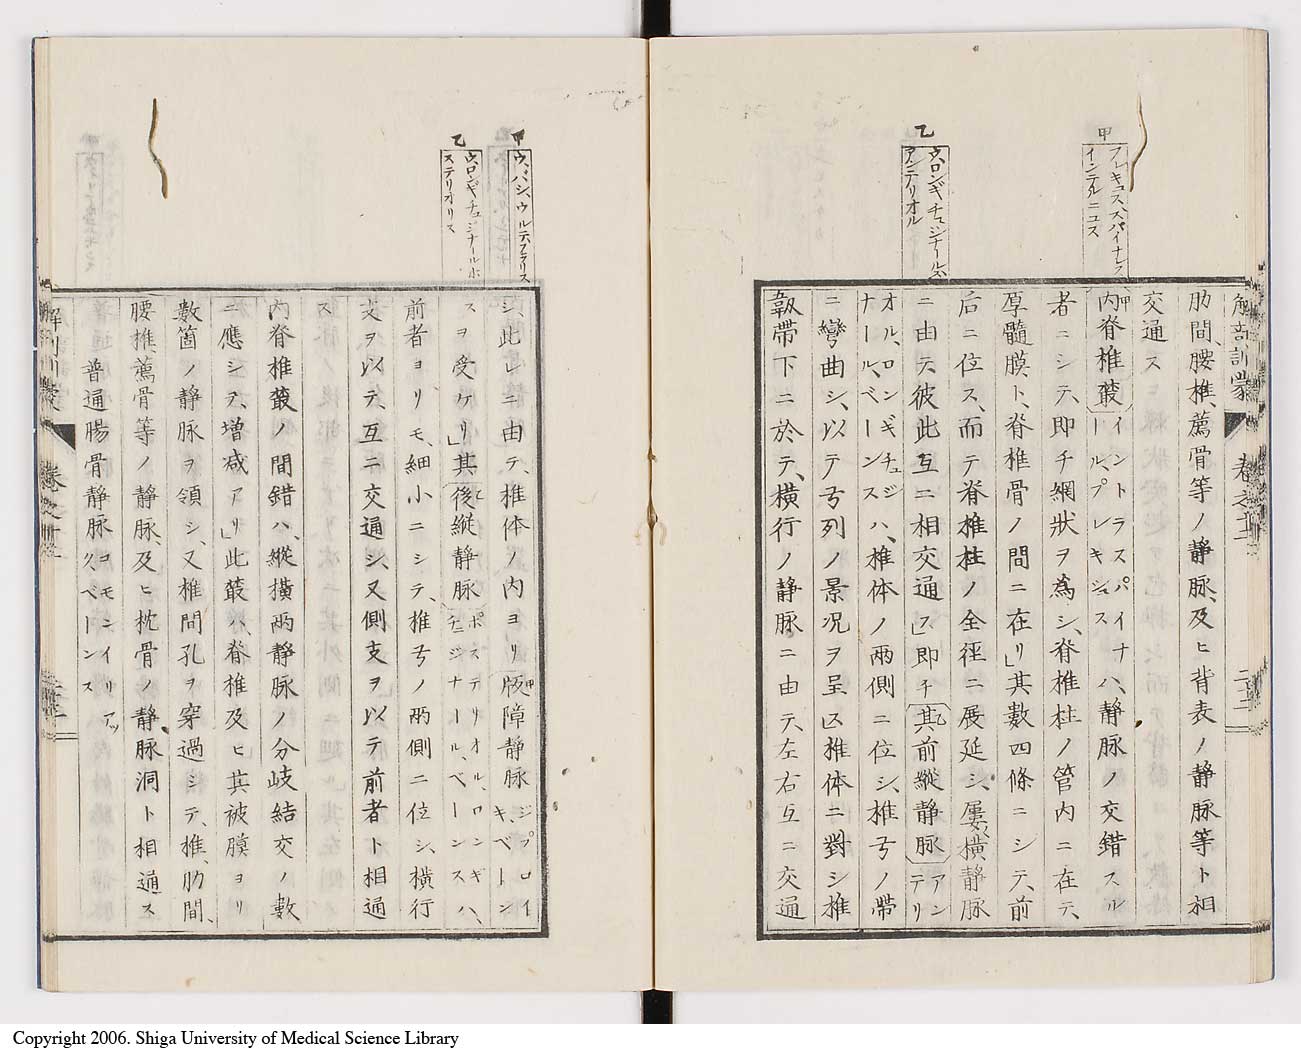 甲
フレキュススパイナレス
インテルニュス
乙
ウ、ロンギ、チュジナールズ
アンテリオル
解剖訓蒙
肋間、腰椎、薦骨等ノ静脈、及ヒ背表ノ静脈等ト相
交通ス
内脊椎叢イントラスパイナ
ール、プレキシュスハ、静脈ノ交錯スル
者ニシテ、即チ網狀ヲ為シ、脊椎柱ノ管内ニ在テ、
厚髓膜ト、脊椎骨ノ間ニ在リ」其數四條ニシテ、前
后ニ位ス、而テ脊椎柱ノ全徑ニ展延シ、屢横静脈
ニ由テ、彼此互ニ相交通ス」即チ其前縦静脈アンテリ
オル、ロンギチュジ
ナール、ベーンスハ、椎体ノ兩側ニ位シ、椎弓ノ帶
ニ彎曲シ、以テ弓列ノ景况ヲ呈シ椎体ニ對シ椎
靱帶下ニ於テ、横行ノ静脈ニ由テ、左右互ニ交通
甲
ウ、バシ、ウルテブラリス
乙
ウ、ロンギ、チュジナールホ
ステリオリス
シ、此レニ由テ、椎体ノ内ヨリ版障静脈ジプロイ
キ、ベーン
スヲ受ケリ」其後縦静脈ポステリオル、ロンギ
チュジナール、ベーンスハ、
前者ヨリモ、細小ニシテ、椎弓ノ兩側ニ位シ、横行
支ヲ以テ、互ニ交通シ、又側支ヲ以テ前者ト相通
ス
内脊椎叢ノ間錯ハ、縱横兩静脈ノ分岐結交ノ數
ニ應シテ、増减アリ」此叢ハ、脊椎及ヒ其被膜ヨリ
數箇ノ静脈ヲ領シ、又椎間孔ヲ穿過シテ、椎、肋間、
腰椎、薦骨等ノ静脈、及ヒ枕骨ノ静脈洞ト相通ス
普通腸骨静脈コモンイリアッ
クベーンス
Copyright 2006. Shiga University of Medical Science Library